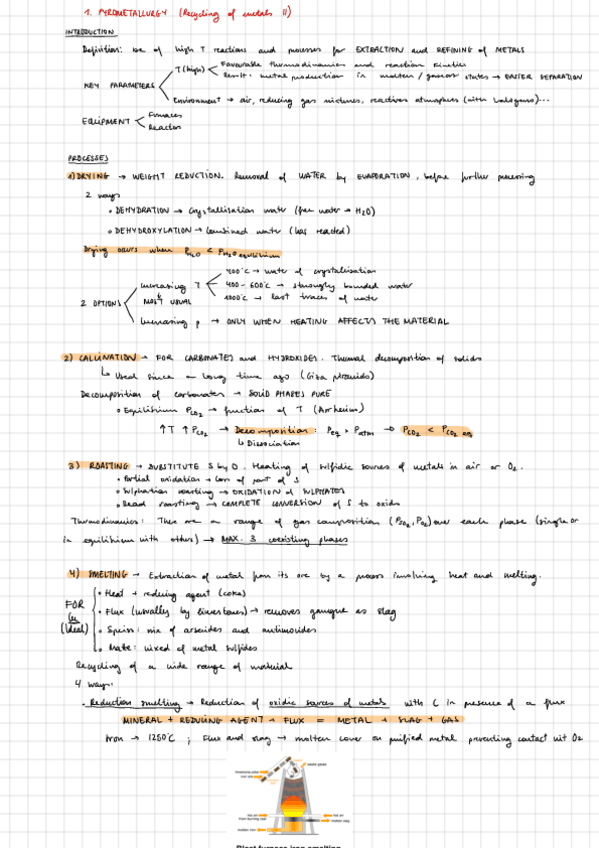 1. PYROMETALLURGY (Recycling of metals II)
INTRODUCTION
Definition: use of high T reactions and processes for EXTRACTION and REFINING of METALS
KEY PARAMETERS
T (high)
Favourable thermodynamics and reaction kinetics
metal production in molten / gaseous states → EASIER SEPARATION
Environment → air, reducing gas mixtures, reactives atmosphere (with halogens)...
EQUIPMENT
Furnaces
Reactor
PROCESSES
1) DRYING → WEIGHT REDUCTION. Removal of WATER by EVAPORATION, before further processing
2 ways
• DEHYDRATION → Crystallisation water (free water → H2O)
• DEHYDROXYLATION → Combined water (has reacted)
Drying occurs when PH2O < PH2O equilibrium
2 OPTIONS
Increasing T
MOST USUAL
→ water of crystallisation
400 - 600°C → strongly bounded water
1000°C → last traces of water
p → ONLY WHEN HEATING AFFECTS THE MATERIAL
2) CALCINATION → FOR CARBONATES and HYDROXIDES. Thermal decomposition of solids
↳ Used since a long time ago (Giza piramids)
Decomposition of carbonates → SOLID PHASES PURE
• Equilibrium PCO2 → function of T (Arrhenius)
↑T ↑PCO2 → Decomposition: Peq > Patm → PCO2 < PCO2 eq
↳ Dissociation
3) ROASTING → SUBSTITUTE S by O. Heating of sulfidic sources of metals in air or O2.
• Partial oxidation → Loss of part of S
• Sulphation roasting → OXIDATION of SULPHATES
• Dead roasting → COMPLETE CONVERSION of S to oxids
Thermodinamics: There are a range of gas composition (PSO2, PO2) over each phase (single or
in equilibrium with others) → MAX. 3 coexisting phases
4) SMELTING → Extraction of metal from its ore by a process involving heat and melting.
FOR
Cu
(Ideal)
• Heat + reducing agent (coke)
• Flux (usually by limestones) → removes gangue as slag
• Speiss: mix of arsenides and antimonides
• Mate: mixed of metal sulfides
Recycling of a wide range of material
4 ways:
• Reduction smelting → Reduction of oxidic sources of metals with C in presence of a flux
MINERAL + REDUCING AGENT + FLUX = METAL + SLAG + GAS
Iron → 1250°C ; Flux and slag → molten cover on purified metal preventing contact wit O2
waste gases
hot air
hot air
molten slag
molten iron
Blast furnace iron smelting